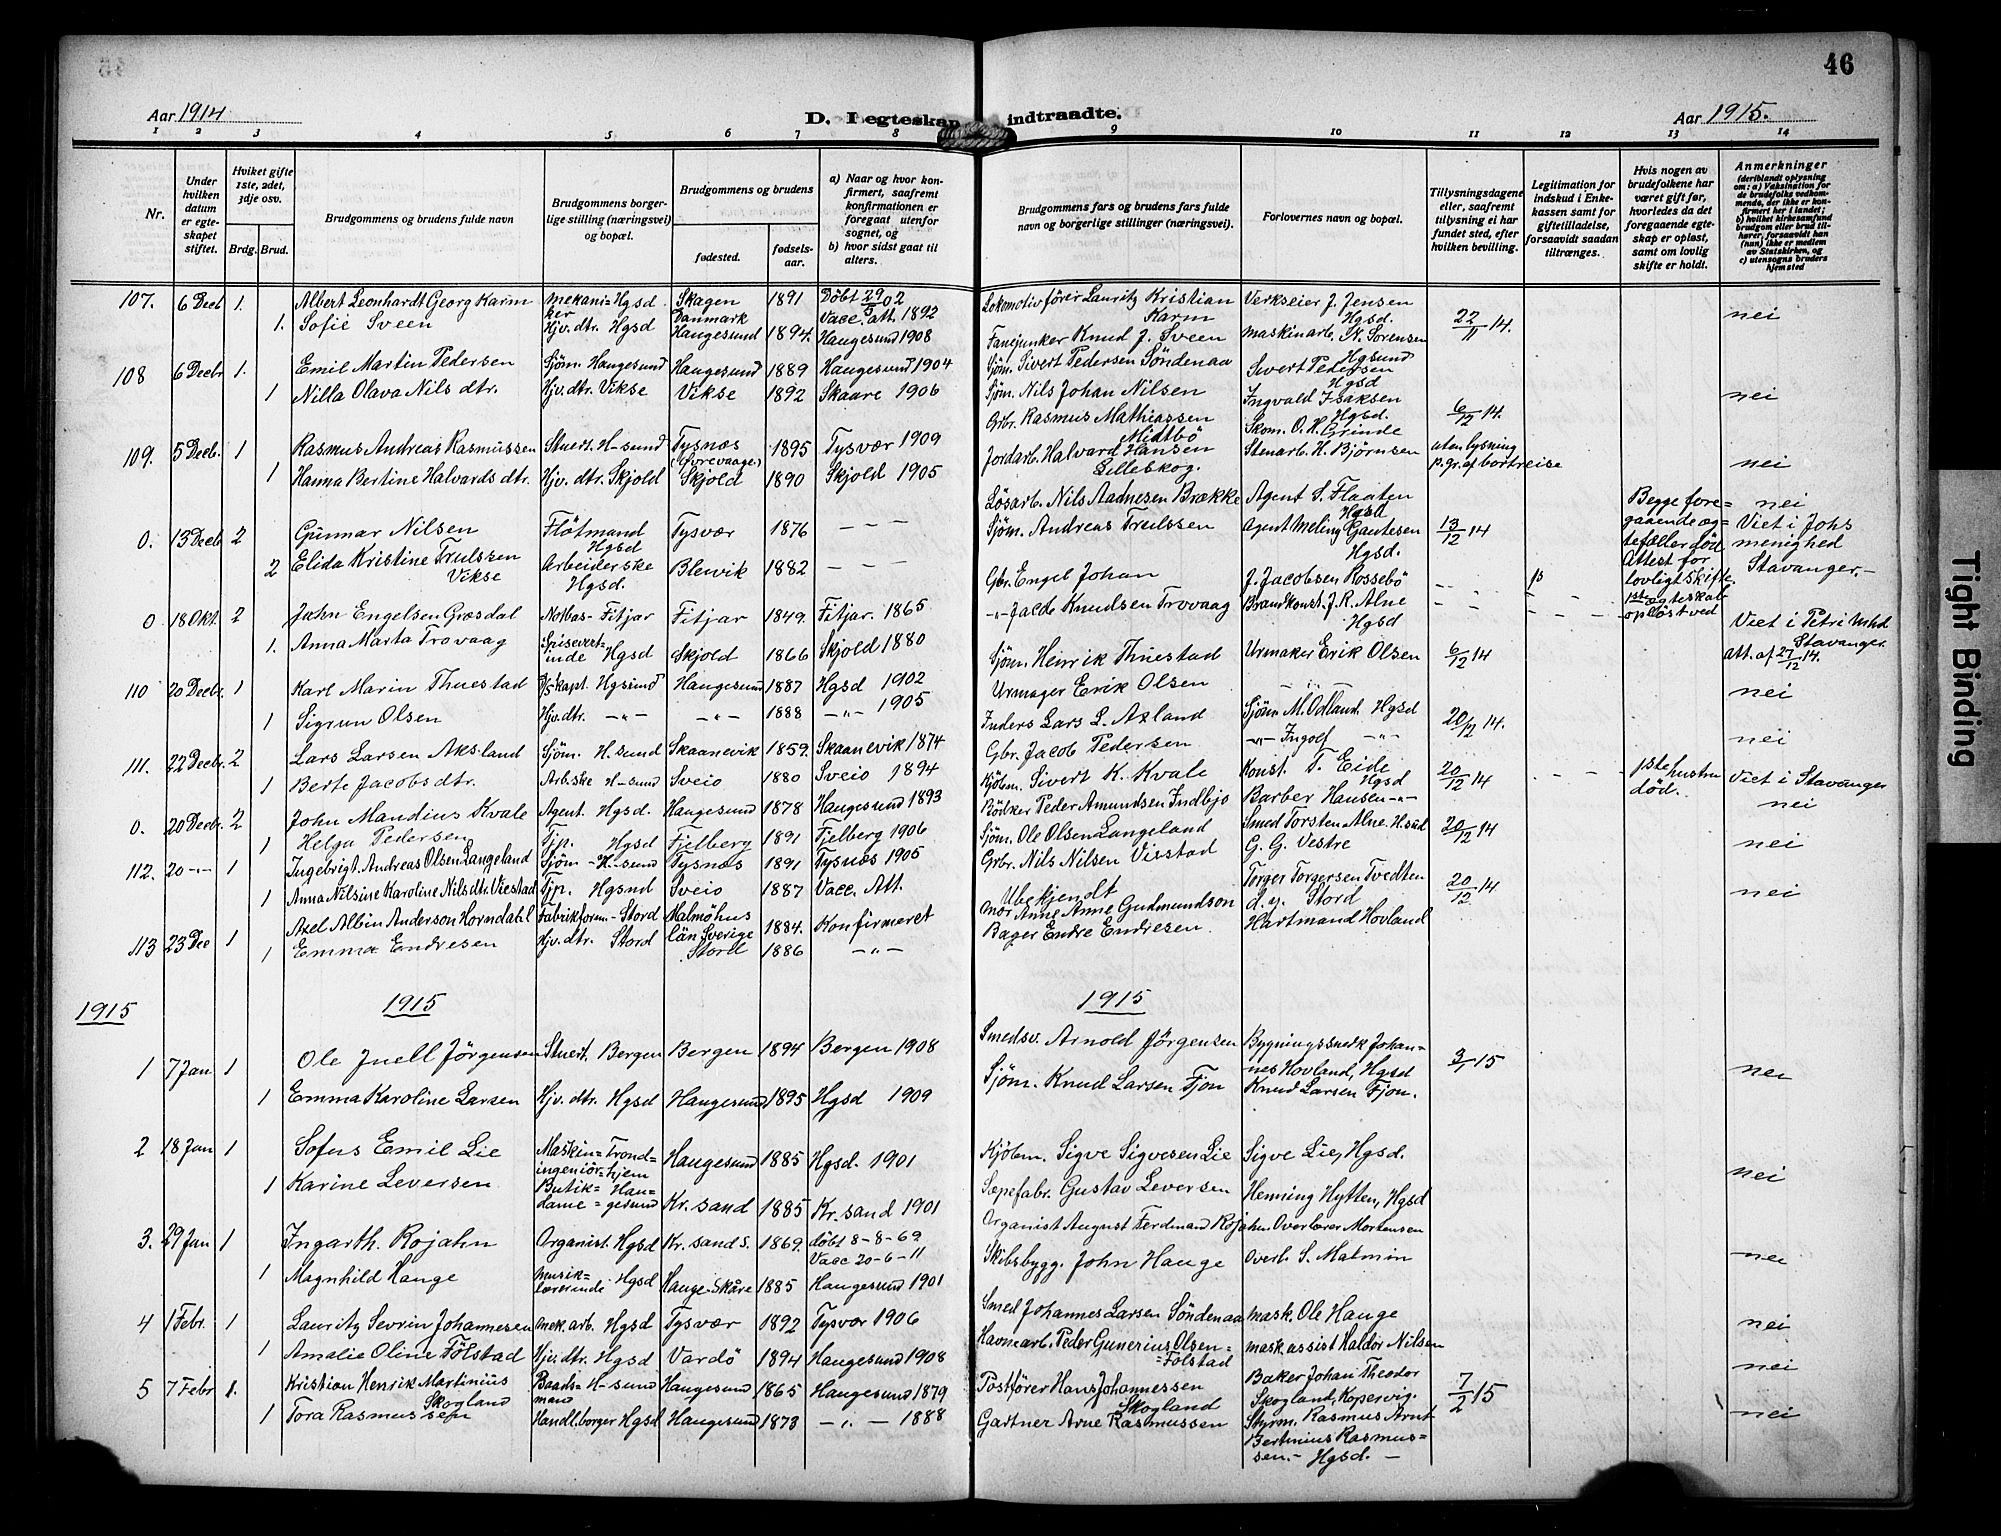 46
Aar 1914
D. I egteskap indtraadte.
Aar 1915.
1 2 3 4 5 6 7 8 9 10 11 12 13 14
Nr.
Under hvilken datum er egteskapet stiftet.
Hviket gifte 1ste, 2det, 3dje osv.
Brdg. Brud.
Brudgommens og brudens fulde navn
Brudgommens borgerlige stilling (næringsvei) og bopæl.
Brudgommens og brudens
fødested.
fødselsaar.
a) Naar og hvor konfirmert, saafremt konfirmationen er foregaat utenfor sognet, og
b) hvor sidst gaat til alters.
Brudgommens fars og brudens fars fulde navn og borgerlige stillinger (næringsvei).
Forlovernes navn og bopæl.
Tillysningsdagene eller, saafremt tillysning ei har fundet sted, efter hvilken bevilling.
Legitimation for indskud i Enkekassen samt for giftetilladelse, forsaavidt saadan tiltrænges.
Hvis nogen av brudefolkene har været gift før, hvorledes da det foregaaende egteskap er opløst, samt om lovlig skifte er holdt.
Anmerkninger
(deriblandt oplysning om: a) Vaksination for de brudefolks vedkommende, der ikke er konfirmert her i landet; b) hvilket kirkesamfund brudgom eller brud tilhører, forsaavidt han (hun) ikke er medlem av Statskirken, og c) utensogns bruders hjemsted
107. 6 Decb 1. Albert Leonhardt Georg Karm mekaniker Hgsd Skagen Danmark 1891 Døbt 29/5 02 Vacc. att. 1892 Lokomotivfører Lauritz Kristian Karm Verkseier J. Jensen Hgsd. 22/11 14. nei
1. Sofie Sveen Hjv. dtr. Hgsd Haugesund 1894. Haugesund 1908 Fanejunker Knud J. Sveen maskinarb. N. Sørensen Hgsund
108 6 Decbr 1. Emil Martin Pedersen Sjøm. Haugesund Haugesund 1889 Haugesund 1904 Sjøm. Sivert Pedersen Søndenaa Sivert Pedersen Hgsd
1 Nilla Olava Nils dtr. Hjv. dtr. Vikse Vikse 1892 Skaare 1906 Sjøm. Nils Johan Nilsen Ingvald Isaksen Hgsd. 6/12 14. nei
109. 5 Decb. 1 Rasmus Andreas Rasmussen Stuert. H-sund Tysnæs 1895 Tysvær 1909 Grbr. Rasmus Mathiassen Midtbø Skom. O. H. Grinde utan lysning p. gr. af bortreise
1 Hanna Bertine Halvards dtr. Hjv. dtr. Skjold Skjold 1890 Skjold 1905 Jordarb. Halvard Hansen Lilleskog. Stenarb. H. Bjørnsen nei
0. 13 Decb 2 Gunnar Nilsen Fløtmand Hgsd Tysvær 1876 – – – Løsarb. Nils Aadnesen Brække Agent S. Flaaten Hgsd 13/12 14 Begge foregaaende ægtefæller død Attest for lovligt skifte nei Viet i Johs menighed Stavanger.–
2 Elida Kristine Trulssen Vikse Arbeiderske Hgsd. Blewik 1882 – – – Sjøm. Andreas Trulssen Agent Meling Gautesen Hgsd.
0 18 Okt. 2 John Engelsen Græsdal Notbas- Fitjar Fitjar 1849. Fitjar. 1865 Gbr. Engel Johan J. Jacobsen Rossebø 1ste ægteskab opløst ved
1. Anna Marta Trovaag Spisevertinde Hgsd Skjold 1866 Skjold 1880 -"- Jacob Knudsen Trovaag Brandkonst. J. R. Alne Hgsd Viet i Petri Mhd Stavanger att. af 27/12 14.
110 20 Decbr. 1 Karl Marin Thuestad D/S kapt. Hgsund Haugesund 1887 Hgsd 1902 Sjøm. Henrik Thuestad Urmaker Erik Olsen 6/12 14 nei
1 Sigrun Olsen Hjv. dtr. -"- -"- 1888 -"- 1905 Urmager Erik Olsen
111. 22 Decbr. 2 Lars Larsen Aksland Sjøm. H.sund Skaanevik 1859. Skaanevik 1874 Inders Lars L. Axland Sjøm M. Odland. Hgsd 20/12 14. nei
1 Berte Jacobsdtr. Arb.ske H-sund Sveio 1880 Sveio 1894 Gbr. Jacob Pedersen -"- Ingolf -"-
0. 20 Decbr. 2 John Mandius Kvale Agent. Hgsd. Haugesund 1878 Haugesund 1893 Kjøbm. Sivert K. Kvale Konst. T. Eide Hgsd 20/12 14 1ste hustru død. Viet i Stavanger
1 Helga Pedersen Tjp. Hgsd Fjelberg 1891 Fjelberg 1906 Bødker Peder Amundsen Indbjo Barber Hansen -"- nei
112. 20 -"- 1 Ingebrigt Andreas Olsen Langeland Sjøm - H-sund Tysnæs 1891 Tysnæs 1905 Sjøm. Ole Olsen Langeland Smed Torsten Alne. H.sud 20/12 14 nei
1 Anna Nilsine Karoline Nilsdtr. Viestad Tjp. Hgsnd Sveio 1887 Vacc. Att. Grbr. Nils Nilsen Viestad G. G. Vestre
113 23 Dec 1 Axel Albin Anderson Horndahl Fabrikform.- Stord Malmöhus län Sverige 1884. Konfirmeret Ubekjendt mor Anne Anne Gudmundson Torger Torgersen Tvedten d. y. Stord 20/12 14 nei
1 Emma Endresen Hjv. dtr. Stord Stord 1886 -"- Bager Endre Endresen. Hartmand Hovland
1915 1915 1915
1 7 Jan 1 Ole Juell Jörgensen Stuert. Bergen Bergen 1894 Bergen 1908 Smedsv. Arnold Jörgensen Bygningssnedk Johannes Hovland, Hgsd 3/1 15 nei
1 Emma Karoline Larsen Hjv. dtr. Hgsd Haugesund 1895 Hgsd 1909 Sjøm. Knud Larsen Fjon Knud Larsen Fjon.
2 18 Jan 1 Sofus Emil Lie Maskiningeniör Trondhjem Haugesund 1885 Hgsd. 1901 Kjöbm. Sigve Sigvesen Lie Sigve Lie, Hgsd.
1 Karine Leversen Butikdame Haugesund Kr. sand 1885 Kr. sand 1901 Sæpefabr. Gustav Leversen Henning Hytten, Hgsd nei
3. 29 Jan 1 Ingarth. Rojahn Organist. Hgsd Kr. sand S. 1869. døbt 8-8-69 Vacc 20-6-11 Organist August Ferdinand Rojahn. Overlærer Mortensen
1 Magnhild Hauge Musiklærerinde Hgsd Hauge-Skåre 1885 Haugesund 1901 Skibsbygg. John Hauge Overl. S. Malmin nei
4 1 Febr. 1 Lauritz Sevrin Johannesen mek. arb. Hgsd Tysvær 1892 Tysvor 1906 Smed Johannes Larsen Söndenaa mask. Ole Hauge nei
1 Amalie Oline Fölstad Hjv. dtr. Hgsd Vardö 1894 Haugesund 1908 Havnearb. Peder Gunerius Olsen Folstad mask. assist Haldor Nilsen nei
5 7 Febr 1. Kristian Henrik Martinius Skogland Baadsmand H-sund Haugesund 1865 Haugesund 1879 Postförer Hans Johannessen Skogland Baker Johan Theodor Skogland, Kopervig. 7/2 15
1 Tora Rasmussen Handl.borger Hgsd Haugesund 1873 -"- 1888 Gartner Arne Rasmussen Styrm. Rasmus Arnt Bertinius Rasmussen.- Hgsd. – nei
Tight Binding